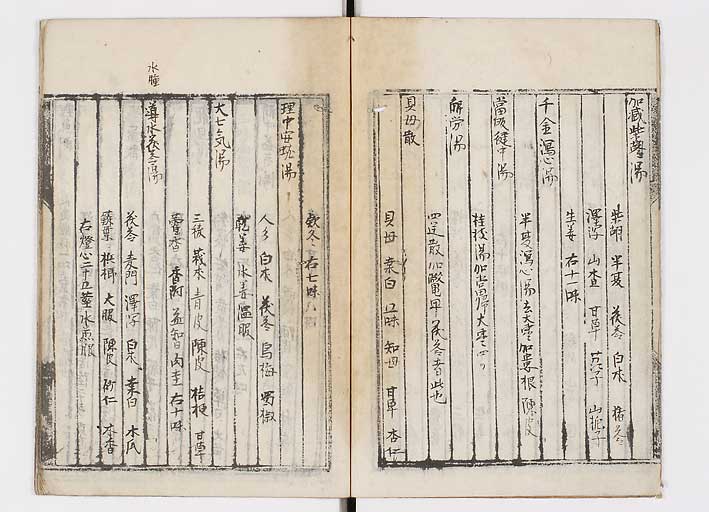 加減柴苓湯
柴胡 半夏 茯苓 白朮 猪苓
澤瀉 山査 甘草 山梔子
生姜 右十一味
千金瀉心湯
半夏瀉心湯去大棗加葛根 陳皮
當歸健中湯
桂枝湯加當歸大棗
解労湯
四逆散加鱉甲茯苓者此也
貝母散
貝母 桑白 五味 知母 甘草 杏仁
款冬 右七味
理中安蛔湯
人参 白朮 茯苓 烏梅 蜀椒
乾姜 水姜温服
大七気湯
三稜 莪朮 青皮 陳皮 桔梗 甘草
藿香 香附 益智 肉圭 右十味
水腫
導水茯苓湯
茯苓 麦門 澤瀉 白朮 桑白 木瓜
蘇葉 檳榔 大服 陳皮 砂仁 木香
右燈心二十五莖水煎服